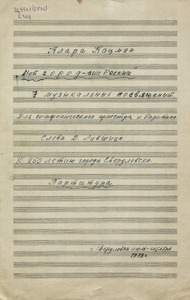 Клара Кацман
"Мой город - сын России"
7 музыкальных посвящений
для симфонического оркестра и баритона
Слова
К 250-летию города Свердловска
Партитура
г. Свердловск
1973 г.